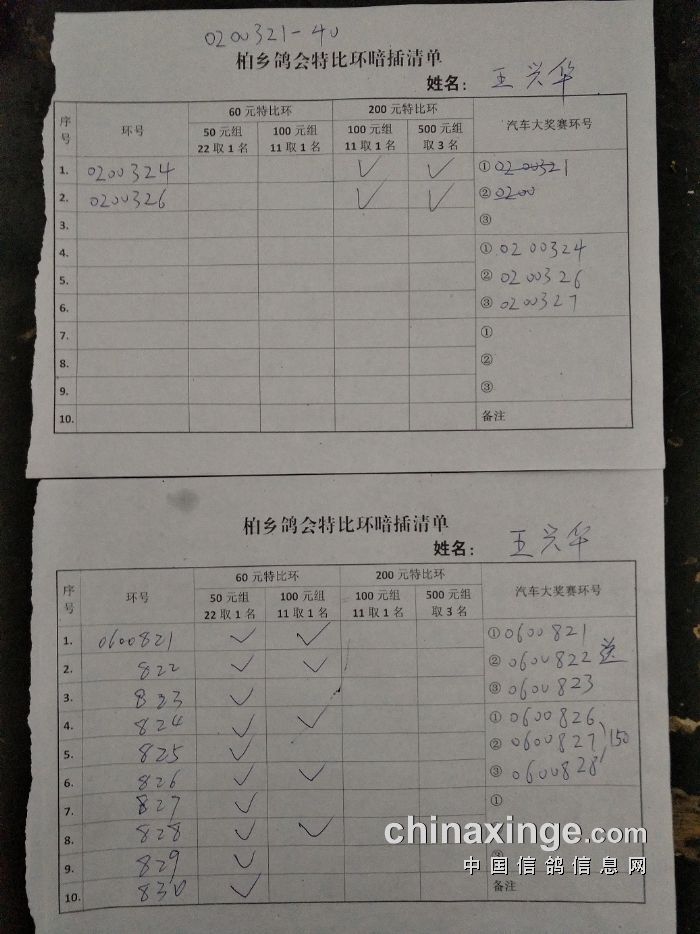 0200321-40
柏乡鸽会特比环暗插清单
姓名： 王兴华
序号 环号 60元特比环 200元特比环 汽车大奖赛环号
50元组 100元组 100元组 500元组
22取1名 11取1名 11取1名 取3名
1. 0200324 ✓ ✓ ① 0200321
2. 0200326 ✓ ✓ ② 0200
3. ③
4. ① 0200324
5. ② 0200326
6. ③ 0200327
7. ①
8. ②
9. ③
10. 备注
柏乡鸽会特比环暗插清单
姓名： 王兴华
序号 环号 60元特比环 200元特比环 汽车大奖赛环号
50元组 100元组 100元组 500元组
22取1名 11取1名 11取1名 取3名
1. 0600821 ✓ ✓ ① 0600821
2. 822 ✓ ✓ ② 0600822 送
3. 823 ✓ ③ 0600823
4. 824 ✓ ✓ ① 0600826
5. 825 ✓ ② 0600827 150
6. 826 ✓ ✓ ③ 0600828
7. 827 ✓ ①
8. 828 ✓ ✓
9. 829 ✓ ③
10. 830 ✓ 备注
chinaxinge.com
中国信鸽信息网